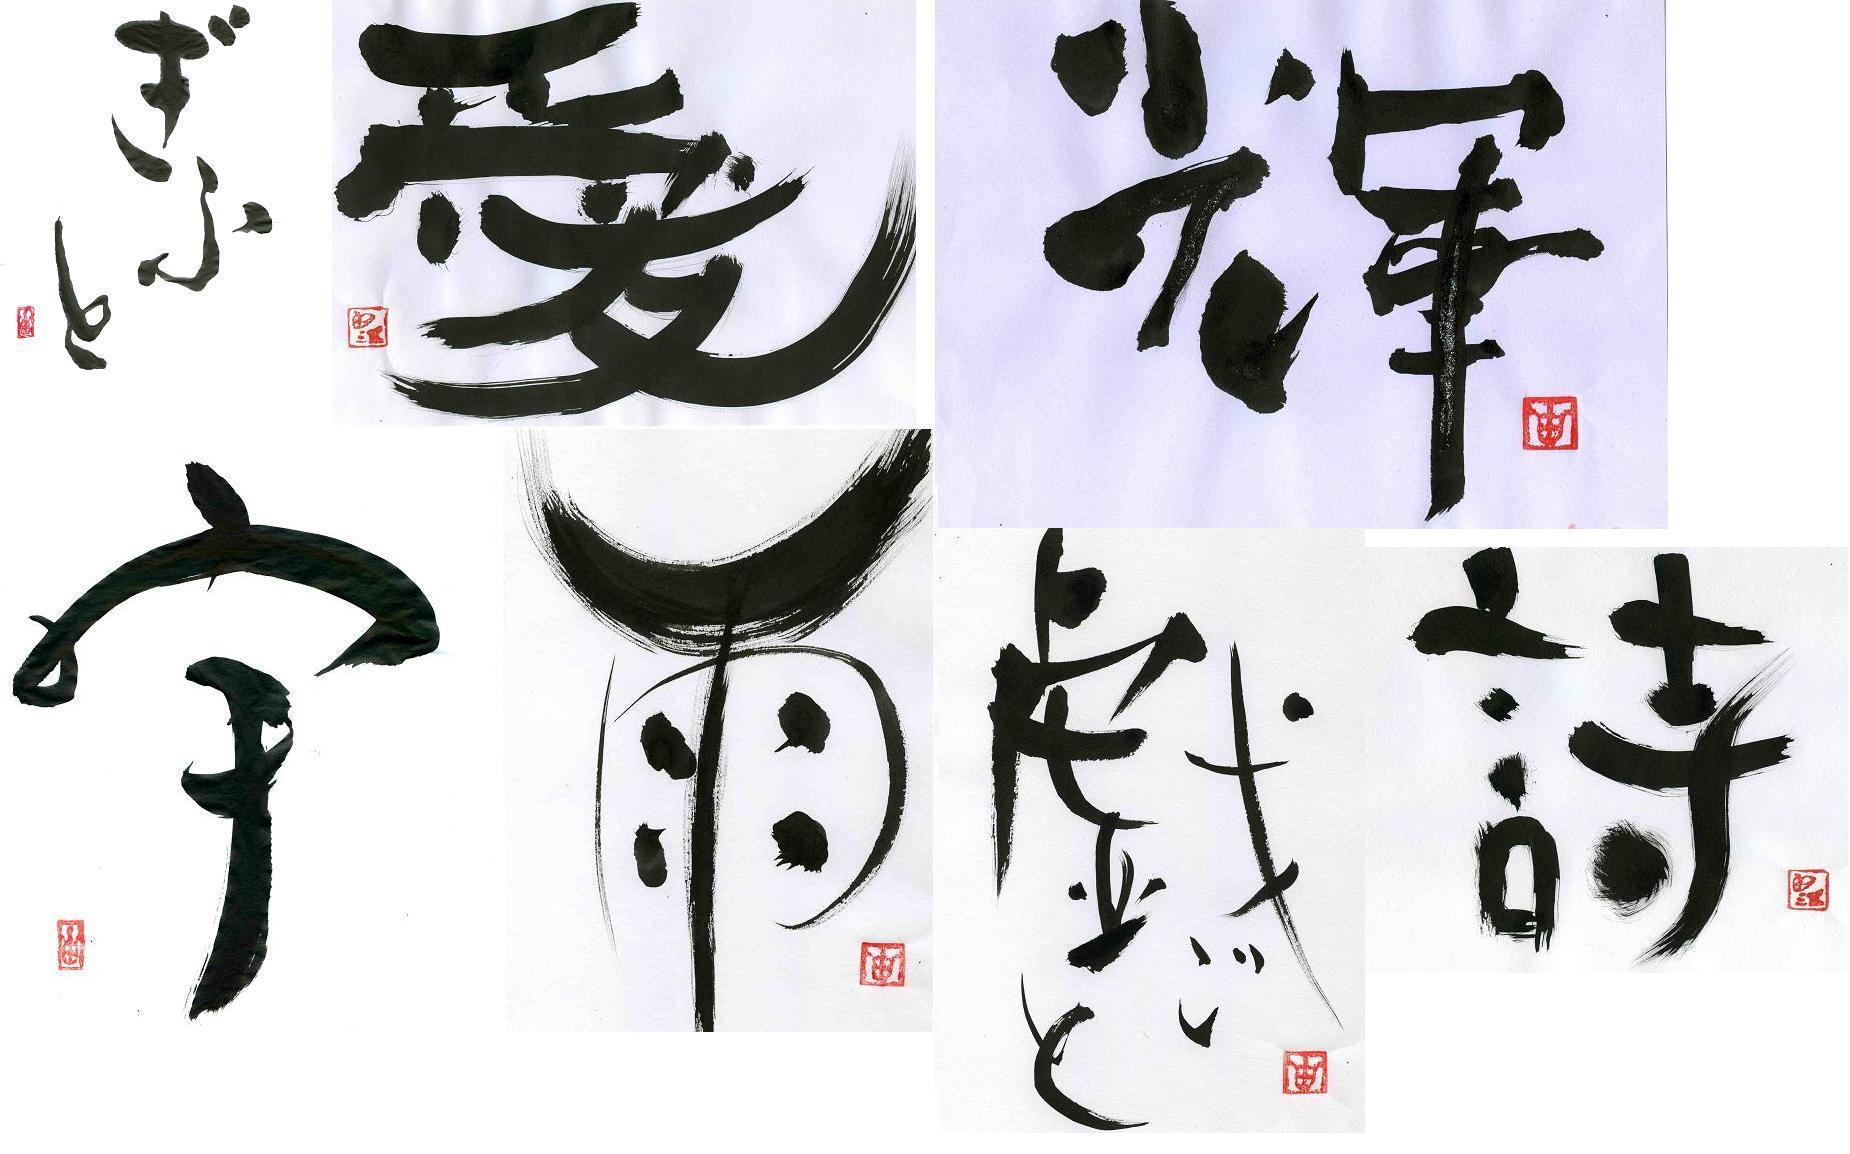 ぎふと
愛
輝
雨
戯ごと
詩